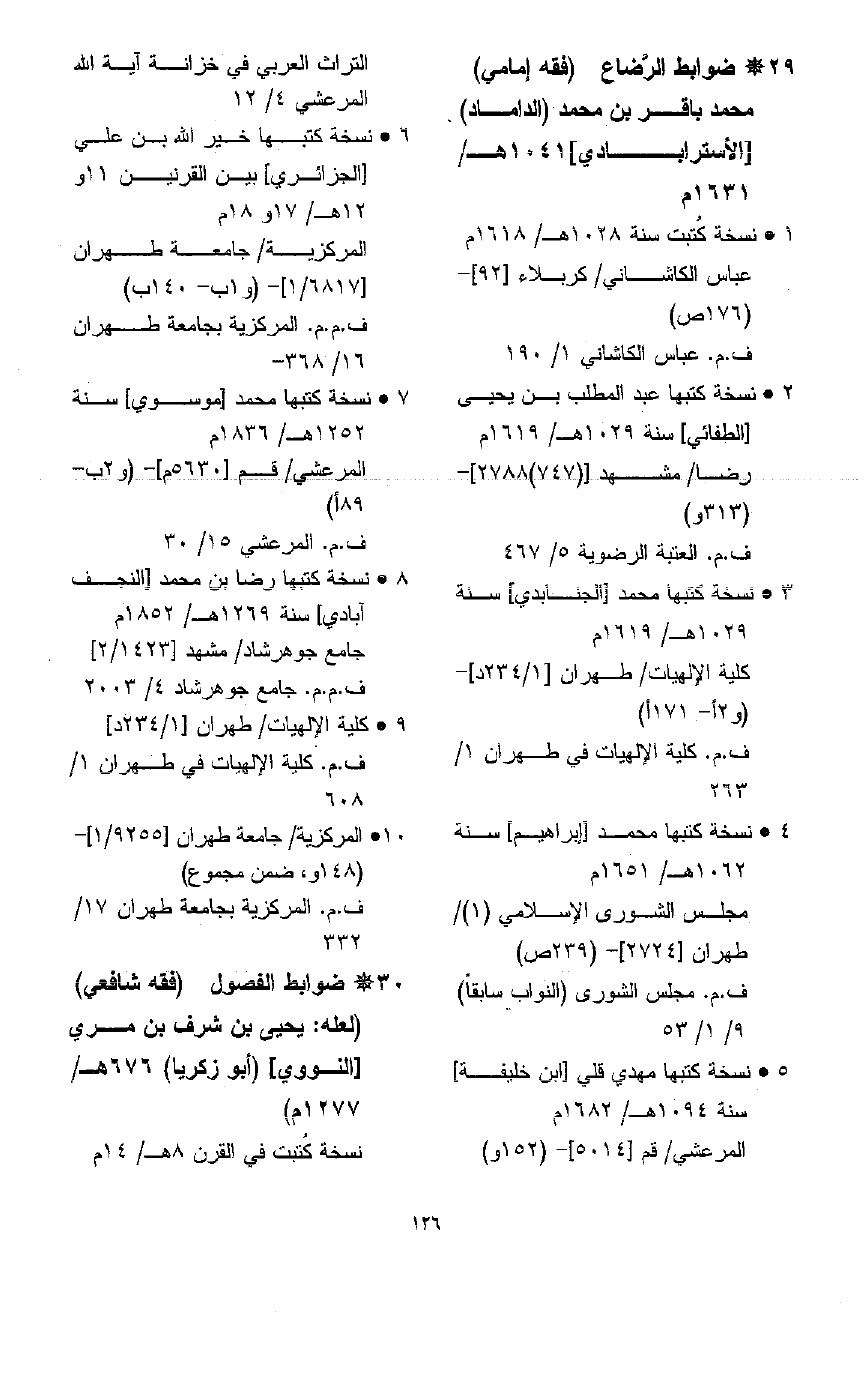 ٢٩ * ضوابط الرَّضاع (فقه إمامي)
محمد باقر بن محمد (الداماد)
[الأسترابادي] ١٠٤١هـ/
١٦٣١م
١ • نسخة كُتبت سنة ١٠٢٨هـ/ ١٦١٨م
عباس الكاشاني/ كربلاء [٩٢]-
(١٧٦ص)
ف.م. عباس الكاشاني ١/ ١٩٠
٢ • نسخة كتبها عبد المطلب بن يحيى
[الطفائي] سنة ١٠٢٩هـ/ ١٦١٩م
رضا/ مشهد [(٧٤٧)٢٧٨٨]-
(٣١٣و)
ف.م. العتبة الرضوية ٥/ ٤٦٧
٣ • نسخة كتبها محمد [الجنابدي] سنة
١٠٢٩هـ/ ١٦١٩م
كلية الإلهيات/ طهران [٢٣٤/١د]-
(و٢أ- ١٧١أ)
ف.م. كلية الإلهيات في طهران ١/
٢٦٣
٤ • نسخة كتبها محمد [إبراهيم] سنة
١٠٦٢هـ/ ١٦٥١م
مجلس الشورى الإسلامي (١)/
طهران [٢٧٢٤]- (٢٣٩ص)
ف.م. مجلس الشورى (النواب سابقاً)
٩/ ١/ ٥٣
٥ • نسخة كتبها مهدي قلي [ابن خليفة]
سنة ١٠٩٤هـ/ ١٦٨٢م
المرعشي/ قم [٥٠١٤]- (١٥٢و)
التراث العربي في خزانة آية الله
المرعشي ٤/ ١٢
٦ • نسخة كتبها خير الله بن علي
[الجزائري] بين القرنين ١١و
١٢هـ/ ١٧و ١٨م
المركزية/ جامعة طهران
[١/٦٨١٧]- (و١ب- ١٤٠ب)
ف.م.م. المركزية بجامعة طهران
١٦/ ٣٦٨-
٧ • نسخة كتبها محمد [موسوي] سنة
١٢٥٢هـ/ ١٨٣٦م
المرعشي/ قم [٥٦٣٠م]- (و٢ب-
٨٩أ)
ف.م. المرعشي ١٥/ ٣٠
٨ • نسخة كتبها رضا بن محمد [النجف
آبادي] سنة ١٢٦٩هـ/ ١٨٥٢م
جامع جوهرشاد/ مشهد [٢/١٤٢٣]
ف.م.م. جامع جوهرشاد ٤/ ٢٠٠٣
٩ • كلية الإلهيات/ طهران [٢٣٤/١د]
ف.م. كلية الإلهيات في طهران ١/
٦٠٨
١٠• المركزية/ جامعة طهران [١/٩٢٥٥]-
(١٤٨و، ضمن مجموع)
ف.م. المركزية بجامعة طهران ١٧/
٣٣٢
٣٠* ضوابط الفصول (فقه شافعي)
(لعله: يحيى بن شرف بن مري
[النووي] (أبو زكريا) ٦٧٦هـ/
١٢٧٧م)
نسخة كُتبت في القرن ٨هـ/ ١٤م
١٢٦